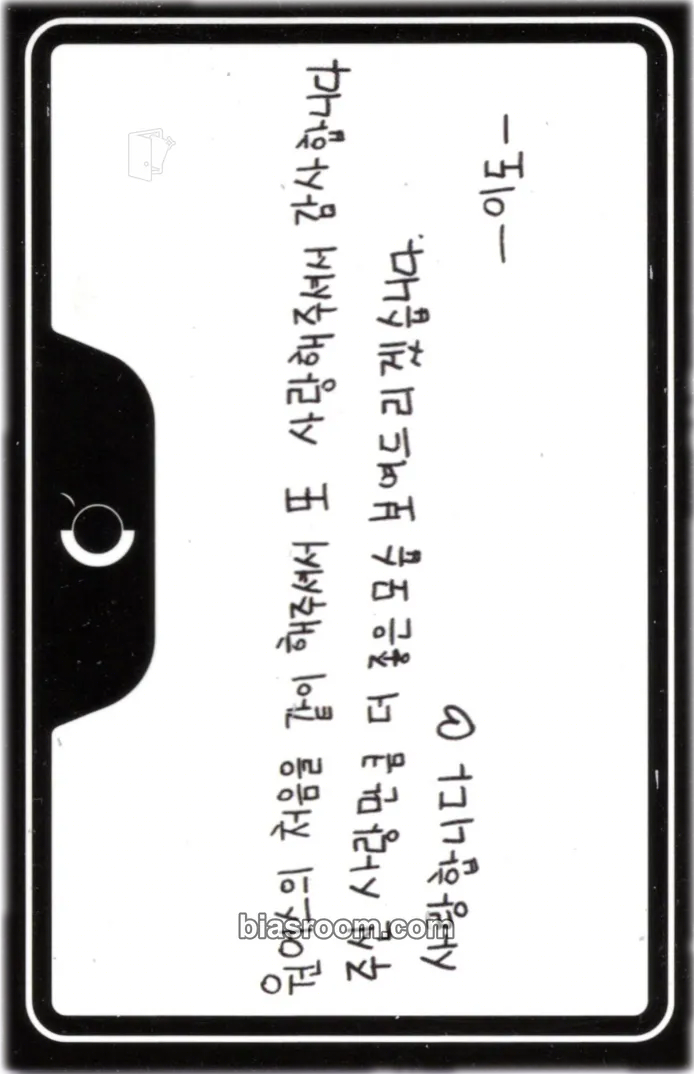 원어스의 처음을 같이 해주셔서 또 사랑해주셔서 감사합니다
주신 사랑만큼 더 좋은 모습 보여드리겠습니다.
사랑합니다 ♡
-이도-
biasroom.com